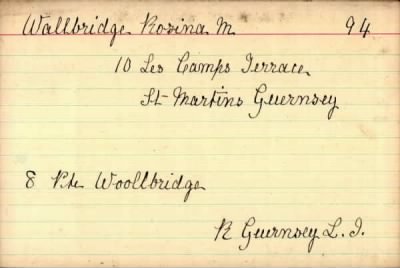 Wallbridge Rosina M 94
10 Les Camps Terrace
St Martins Guernsey
8 Pte Woollbridge
R Guernsey L. I.